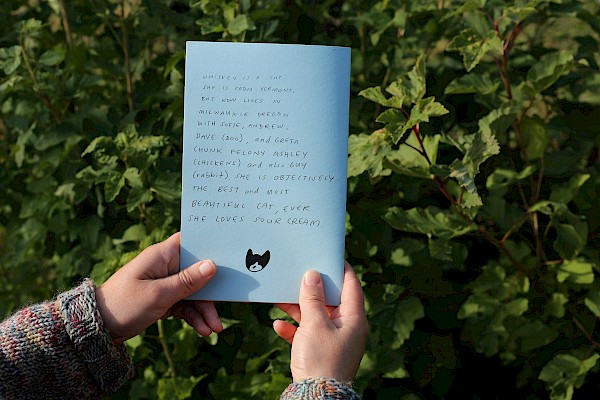 WHISKEY IS A CAT.
SHE IS FROM VERMONT,
BUT NOW LIVES IN
MILWAUKIE OREGON
WITH SOFIE, ANDREW,
DAVE (DOG), and GRETA
CHUNK FELONY ASHLEY
(CHICKENS) and also GUY
(rabbit). SHE IS OBJECTIVELY
THE BEST and MOST
BEAUTIFUL CAT, EVER
SHE LOVES SOUR CREAM